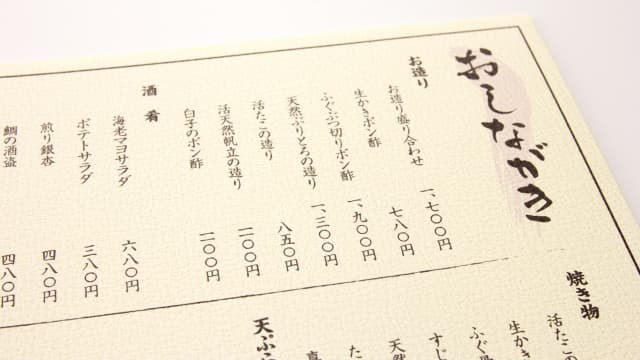 おしながき
お造り
お造り盛り合わせ 一、七〇〇円
生かきポン酢 七八〇円
ふぐぶつ切りポン酢 一、九〇〇円
天然ぶりとろの造り 一、三〇〇円
活たこの造り 八五〇円
活天然帆立の造り 一〇〇円
白子のポン酢 一〇〇円
酒肴
海老マヨサラダ 六八〇円
ポテトサラダ 三八〇円
煎り銀杏 四八〇円
鯛の酒盗 四八〇円
焼き物
活たこの
生かき
ふぐ
すじ
天然
た
真
天ぷ